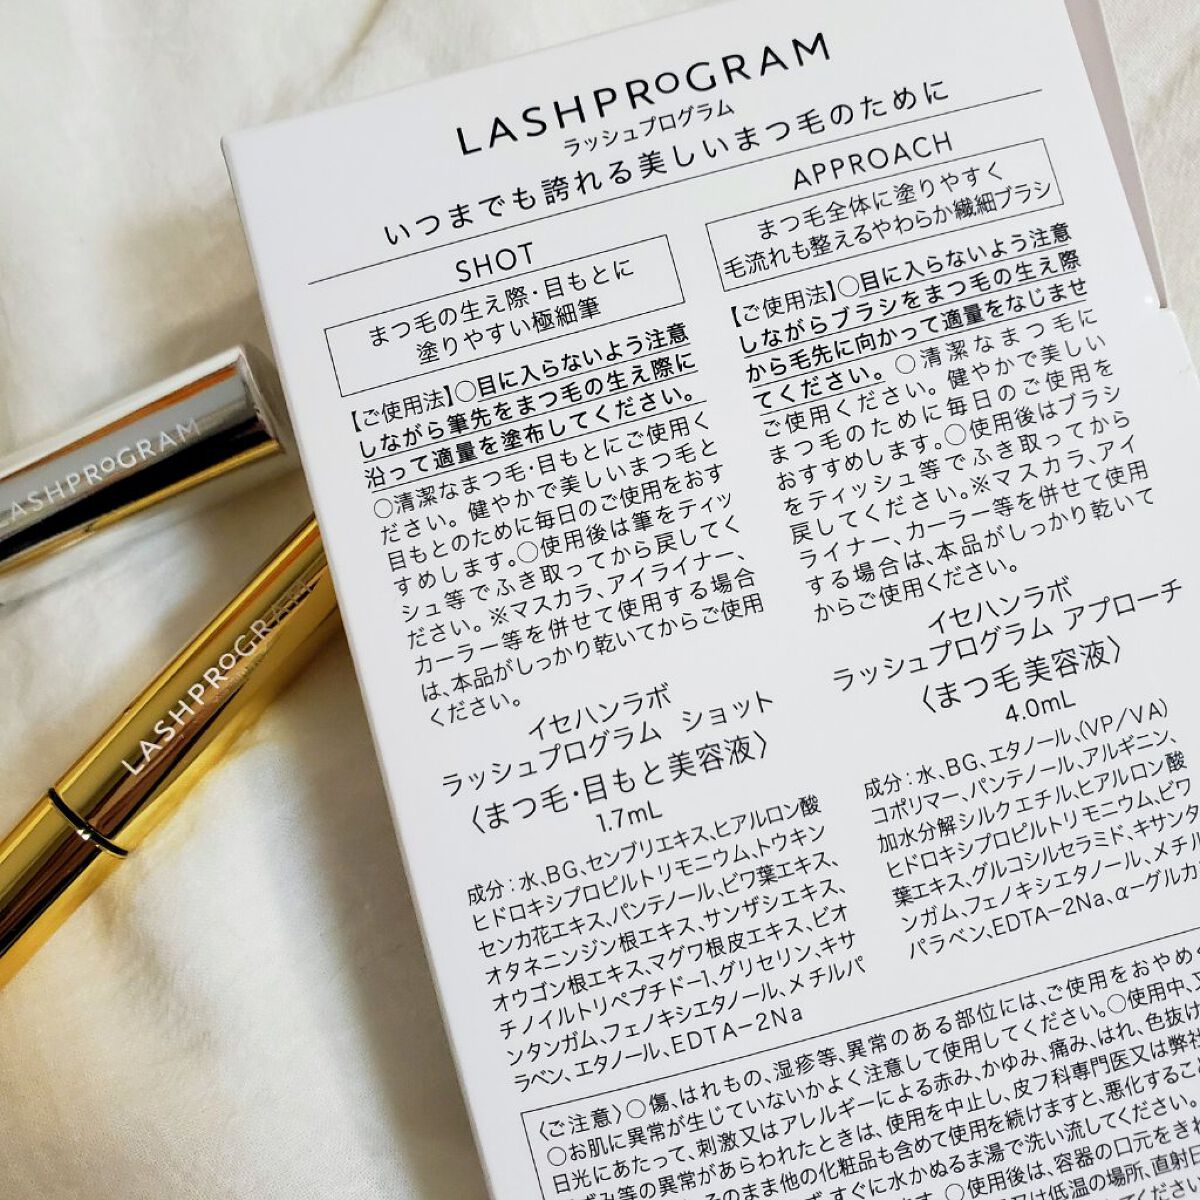 LASHPROGRAM
ラッシュプログラム
いつまでも誇れる美しいまつ毛のために
SHOT
まつ毛の生え際・目もとに
塗りやすい極細筆
【ご使用法】○目に入らないよう注意
しながら筆先をまつ毛の生え際に
沿って適量を塗布してください。
○清潔なまつ毛・目もとにご使用く
ださい。健やかで美しいまつ毛と
目もとのために毎日のご使用をおす
すめします。○使用後は筆をティッ
シュ等でふき取ってから戻してく
ださい。※マスカラ、アイライナー、
カーラー等を併せて使用する場合
は、本品がしっかり乾いてからご使用
ください。
イセハンラボ
ラッシュプログラム ショット
〈まつ毛・目もと美容液〉
1.7mL
成分：水、BG、センブリエキス、ヒアルロン酸
ヒドロキシプロピルトリモニウム、トウキン
センカ花エキス、パンテノール、ビワ葉エキス、
オタネニンジン根エキス、サンザシエキス、
オウゴン根エキス、マグワ根皮エキス、ビオ
チノイルトリペプチド-1、グリセリン、キサ
ンタンガム、フェノキシエタノール、メチルパ
ラベン、エタノール、EDTA-2Na
APPROACH
まつ毛全体に塗りやすく
毛流れも整えるやわらか繊細ブラシ
【ご使用法】○目に入らないよう注意
しながらブラシをまつ毛の生え際
から毛先に向かって適量をなじませ
てください。○清潔なまつ毛に
ご使用ください。健やかで美しい
まつ毛のために毎日のご使用を
おすすめします。○使用後はブラシ
をティッシュ等でふき取ってから
戻してください。※マスカラ、アイ
ライナー、カーラー等を併せて使用
する場合は、本品がしっかり乾いて
からご使用ください。
イセハンラボ
ラッシュプログラム アプローチ
〈まつ毛美容液〉
4.0mL
成分：水、BG、エタノール、(VP/VA)
コポリマー、パンテノール、アルギニン、
加水分解シルクエチル、ヒアルロン酸
ヒドロキシプロピルトリモニウム、ビワ
葉エキス、グルコシルセラミド、キサンタ
ンガム、フェノキシエタノール、メチル
パラベン、EDTA-2Na、α-グルカ
〈ご注意〉○傷、はれもの、湿疹等、異常のある部位には、ご使用をおやめく
○お肌に異常が生じていないかよく注意して使用してください。○使用中、
日光にあたって、刺激又はアレルギーによる赤み、かゆみ、痛み、はれ、色抜け
ずみ等の異常があらわれたときは、使用を中止し、皮フ科専門医又は弊社
そのまま他の化粧品も含めて使用を続けますと、悪化するこ
すぐに水かぬるま湯で洗い流してください。
○使用後は、容器の口元をきれ
低温の場所、直射日
LASHPROGRAM
LASHPROGRAM